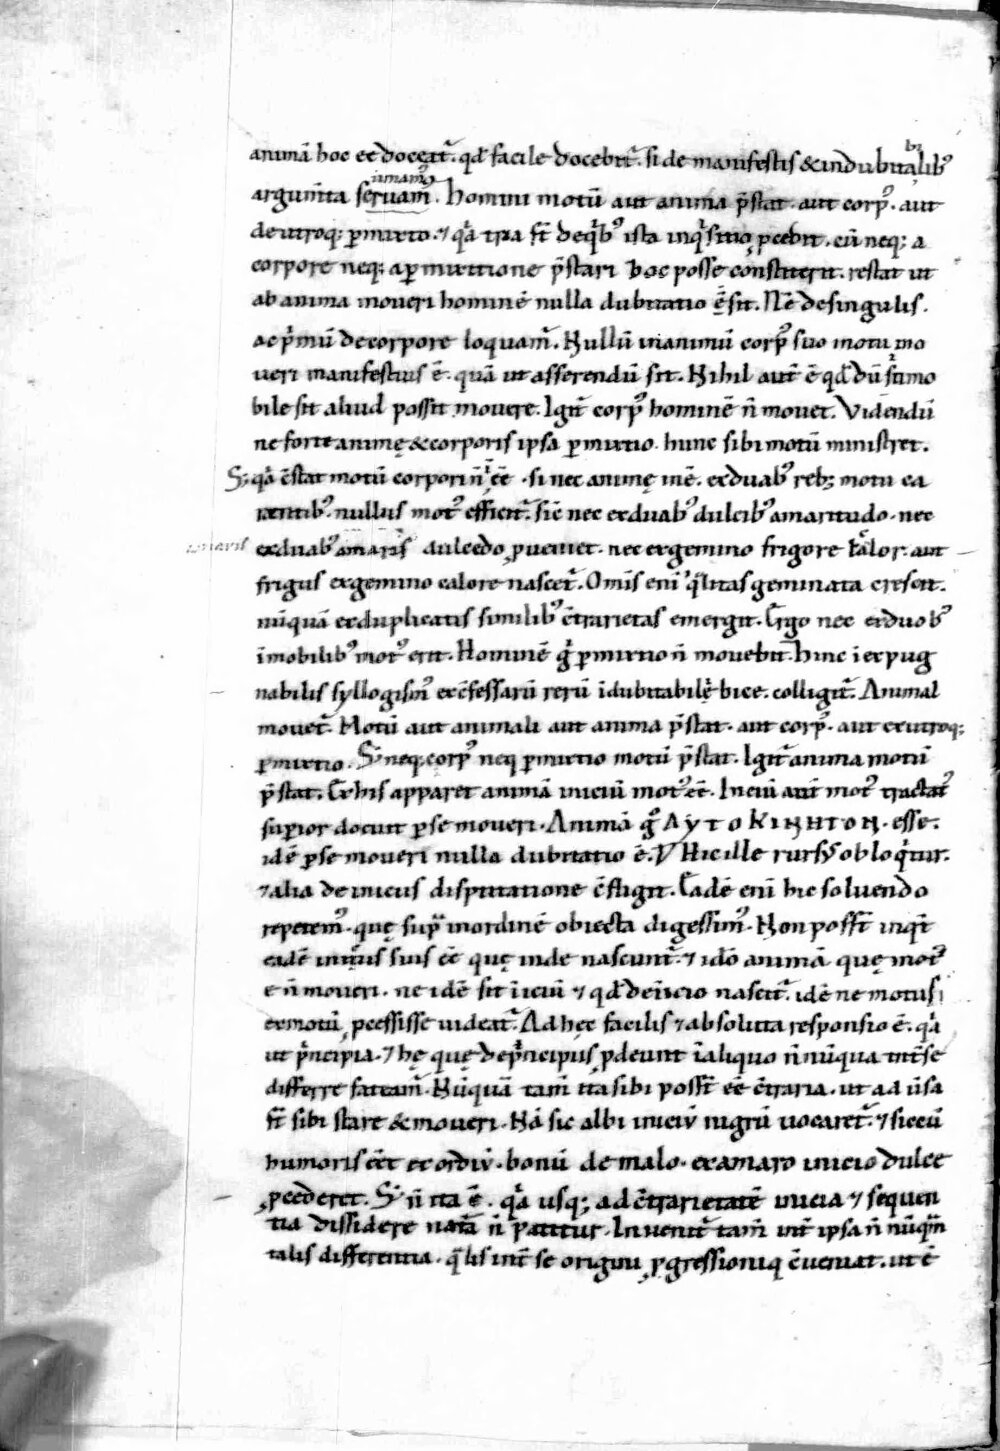 animā hoc eē doceat᷑. qđ facile docebit᷑. si de manifestis & indubitalib᷒
bi
argum̄ta seruam᷒. Homini motū aut anima p̄stat. aut corp᷒. aut
umam᷒
de utroq; ꝑmixto. ⁊ qͣa tria s̄t de qͥb᷒ ista inqͥsitio ꝓcedit. cū neq; a
corpore neq; a ꝑmixtione p̄stari hoc posse constiterit. restat ut
ab anima moueri hominē nulla dubitatio sit. Nc̄ de singulis.
ac pͥmū de corpore loquam᷑. Nullū inanimū corp᷒ suo motu mo
ueri manifestius ē. quā ut asserendū sit. Nihil aut̄ ē qđ dū īmo
bile sit aliud possit mouere. Igit᷑ corp᷒ hominē n̄ mouet. Videndū
ne forte animę & corporis ipsa ꝑmixtio. hunc sibi motū ministret.
S; qͣa c̄stat motū corpori n̄ eē. si nec animę inē. ex duab᷒ reb; motu ca
rentib᷒. nullus mot᷒ efficit᷑. sic̄ nec ex duab᷒ dulcib᷒ amaritudo. nec
ex duab᷒ amaris dulcedo ꝓueniet. nec ex gemino frigore calor. aut
amaris
frigus ex gemino calore nascet᷑. Om̄is eni᷒ qͣlitas geminata crescit.
nūquā ex duplicatis similib᷒ c̄trarietas emergit. Ergo nec ex duob᷒
īmobilib᷒ mot᷒ erit. Hominē gͦ ꝑmixtio n̄ mouebit. Hinc īexpug
nabilis syllogism᷒ ex c̄fessarū rerū īdubitabilę bice. colligit᷑. Animal
mouet᷑. Motū aut animali aut anima p̄stat. aut corp᷒. aut ex utroq;
ꝑmixtio. S; neq; corp᷒ neq ꝑmixtio motū p̄stat. Igit᷑ anima motū
p̄stat. Ex his apparet animā iniciū mot᷒ eē. Iniciū aut̄ mot᷒ tractat᷒
suꝑior docuit ꝑ se moueri. Animā gͦ ΑΥΤΟΚΙΝΗΤΟΝ. esse.
idē ꝑ se moueri nulla dubitatio ē. Hic ille rursū obloqͥtur.
⁊ alia de inicus disputatione c̄fligit. Eadē eni᷒ hic soluendo
repetem᷒. quę supͣ in ordinē obiecta digessim᷒. Non poss̄t inqͥt
eadē initiis suis eē quę inde nascunt᷑. ⁊ idō animā. quę mot᷒
ē n̄ moueri. ne idē sit īiciū ⁊ qđ de īicio nascit᷑. idē ne motus
ex motū ꝓcessisse uideat᷑. Ad hęc facilis ⁊ absoluta responsio ē. qͣa
ut pͥncipia. ⁊ hę quę de pͥncipiis ꝓdeunt ī aliquo n̄ nūqua int̄ se
differre fateam᷑. Nūquā tam̄ ita sibi poss̄t eē c̄traria. ut aduͬsa
s̄t sibi stare & moueri. Nā sic albi iniciū nigrū uocaret᷑. ⁊ siccū
humoris eēt exordiū. bonū de malo. ex amaro inicio dulce
ꝓcederet. S; n̄ ita ē. qͣa usq; ad c̄trarietatē inicia ⁊ sequen
tia dissidere natā n̄ patitur. Inuenit᷑ tam̄ int̄ ipsa n̄ nūqͣm
talis differentia. qͣlis int̄ se origini ꝓgressioniq c̄ueniat. ut ē